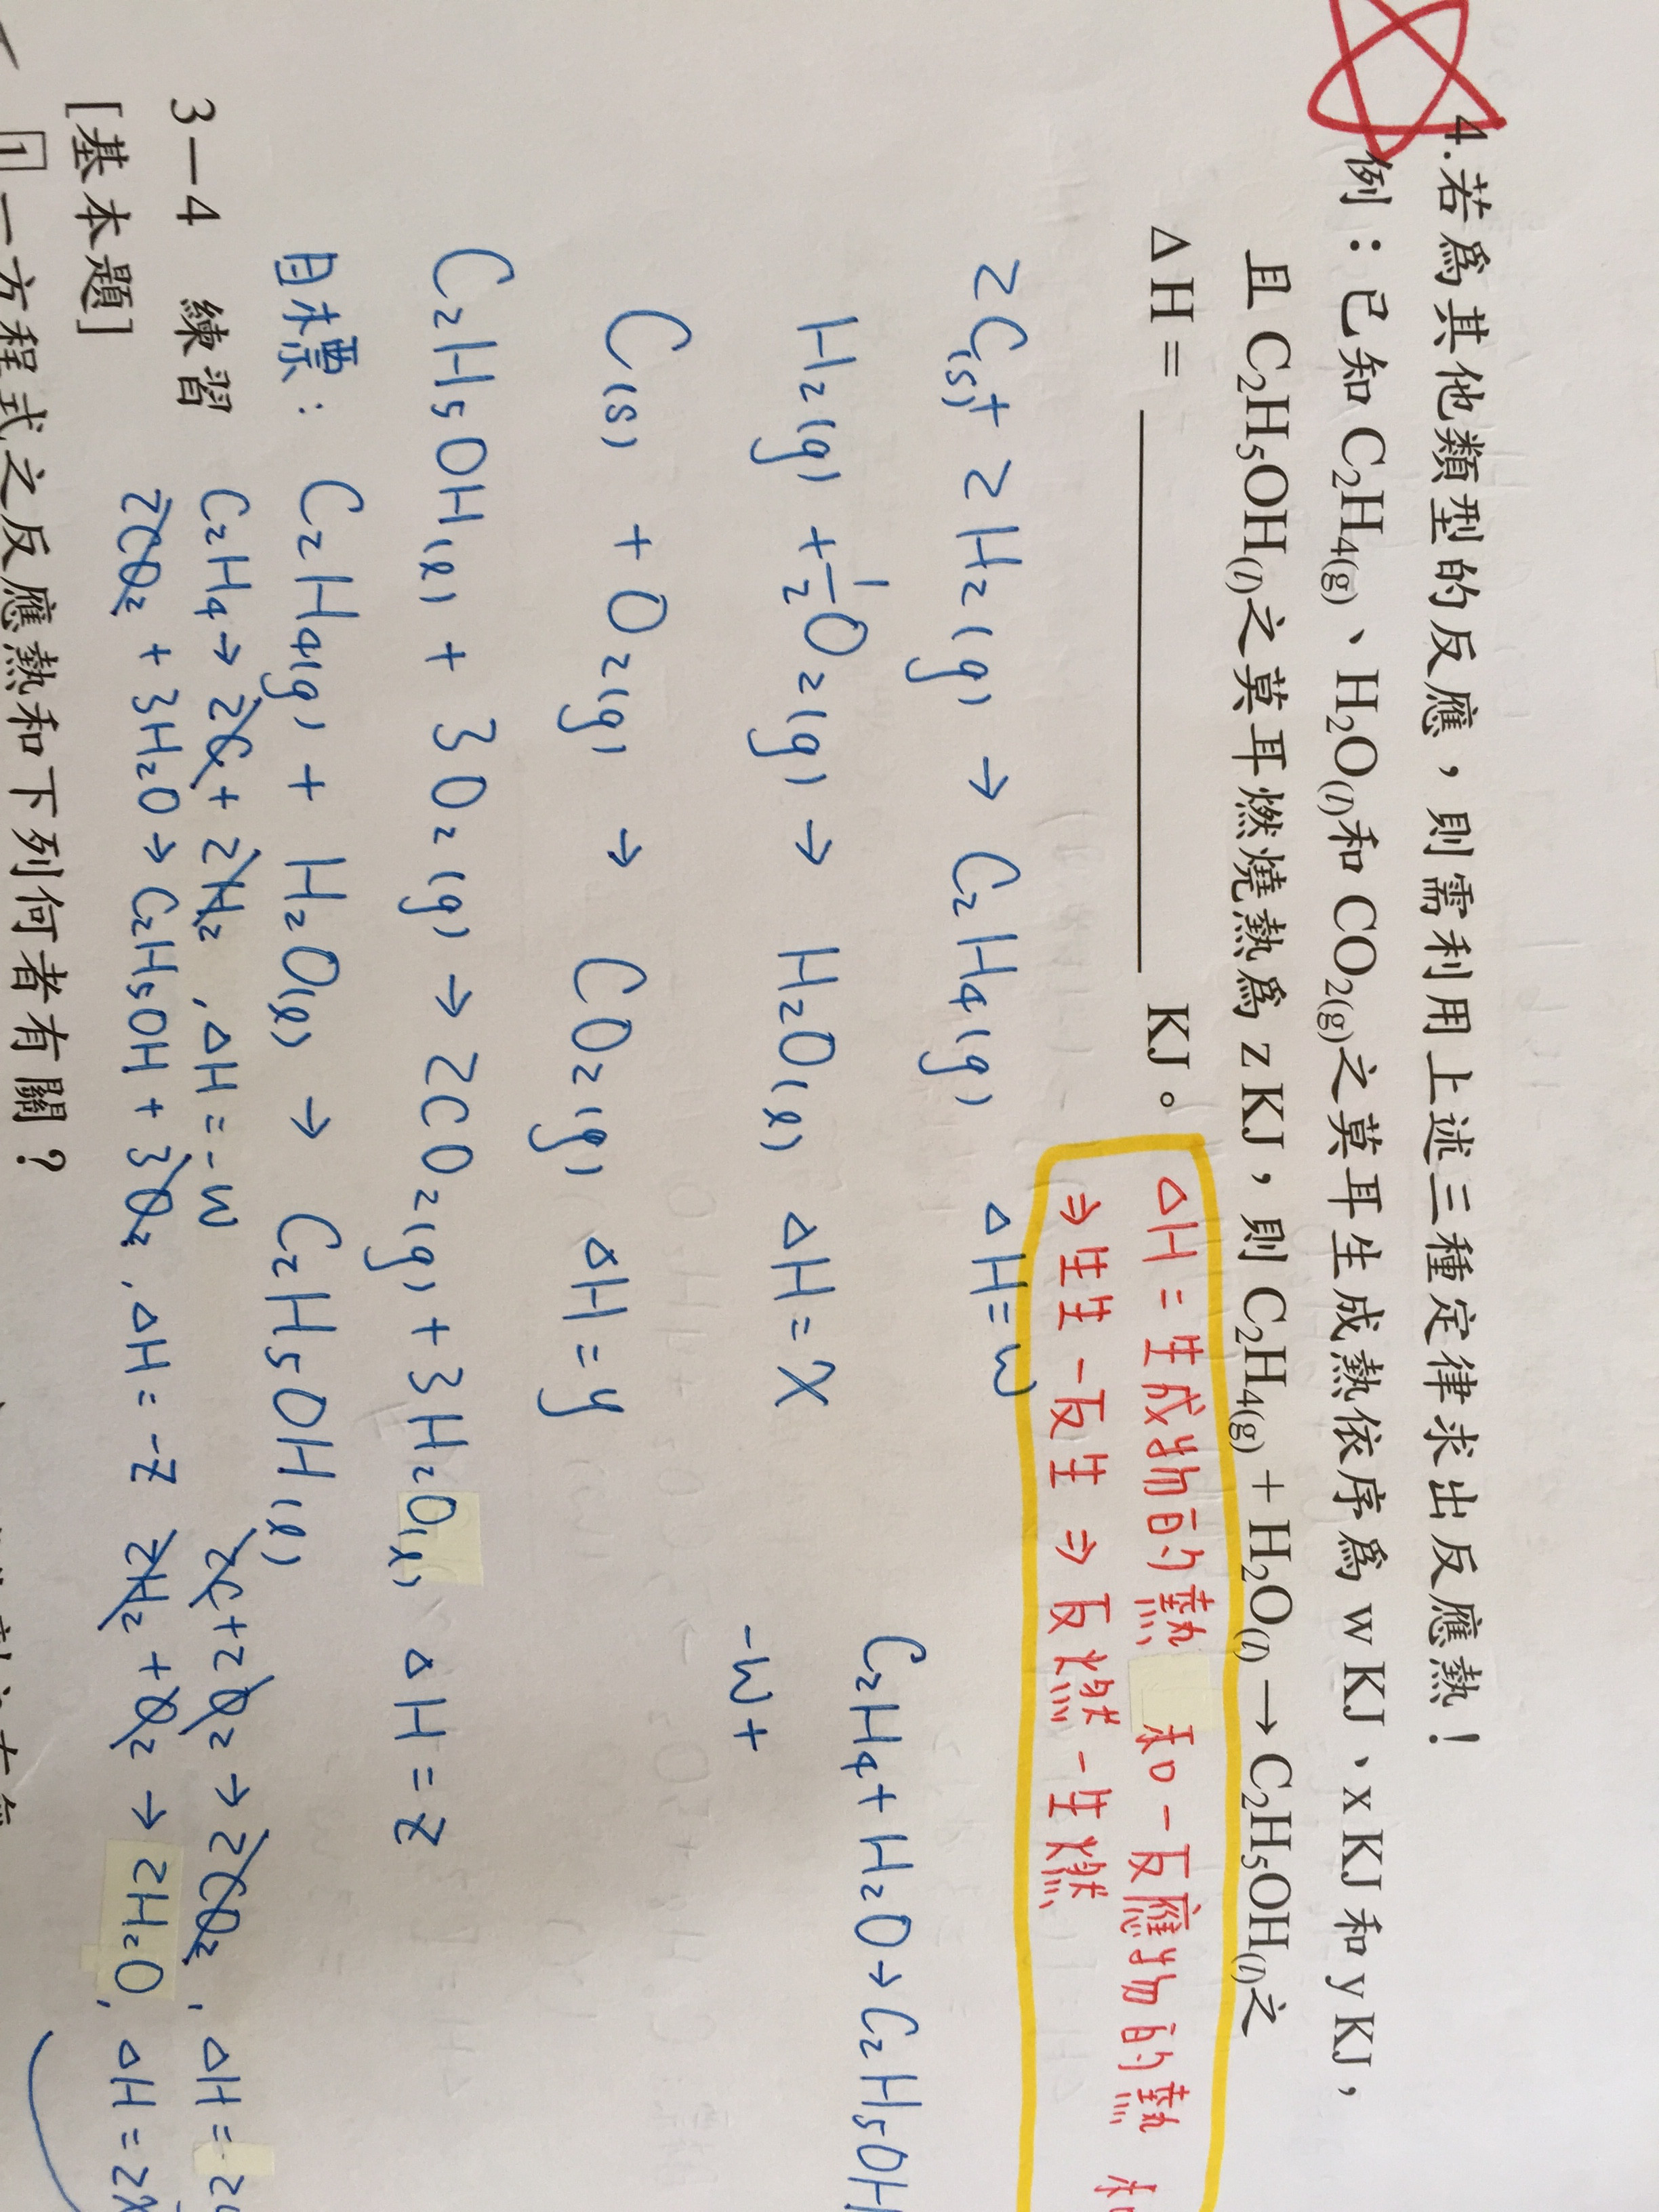 4.若為其他類型的反應，則需利用上述三種定律求出反應熱！
例：已知 C₂H₄(g)、H₂O(l)和 CO₂(g)之莫耳生成熱依序為 w KJ、x KJ 和 y KJ，
且 C₂H₅OH(l)之莫耳燃燒熱為 z KJ，則 C₂H₄(g) + H₂O(l) → C₂H₅OH(l)之
ΔH = ________ KJ。
ΔH = 生成物的熱 和 - 反應物的熱
⇒ 生生 - 反生 ⇒ 反燃 - 生燃
2C(s) + 2H₂(g) → C₂H₄(g) ΔH = w
C₂H₄ + H₂O → C₂H₅OH
H₂(g) + ½O₂(g) → H₂O(l) ΔH = x
-w +
C(s) + O₂(g) → CO₂(g) ΔH = y
C₂H₅OH(l) + 3O₂(g) → 2CO₂(g) + 3H₂O(l) ΔH = z
目標： C₂H₄(g) + H₂O(l) → C₂H₅OH(l)
3－4 練習
C₂H₄ → 2C + 2H₂, ΔH = -w 2C + 2O₂ → 2CO₂, ΔH = 2
2CO₂ + 3H₂O → C₂H₅OH + 3O₂, ΔH = -z 2H₂ + O₂ → 2H₂O, ΔH = 2x
[基本題]
1 一方程式之反應熱和下列何者有關？